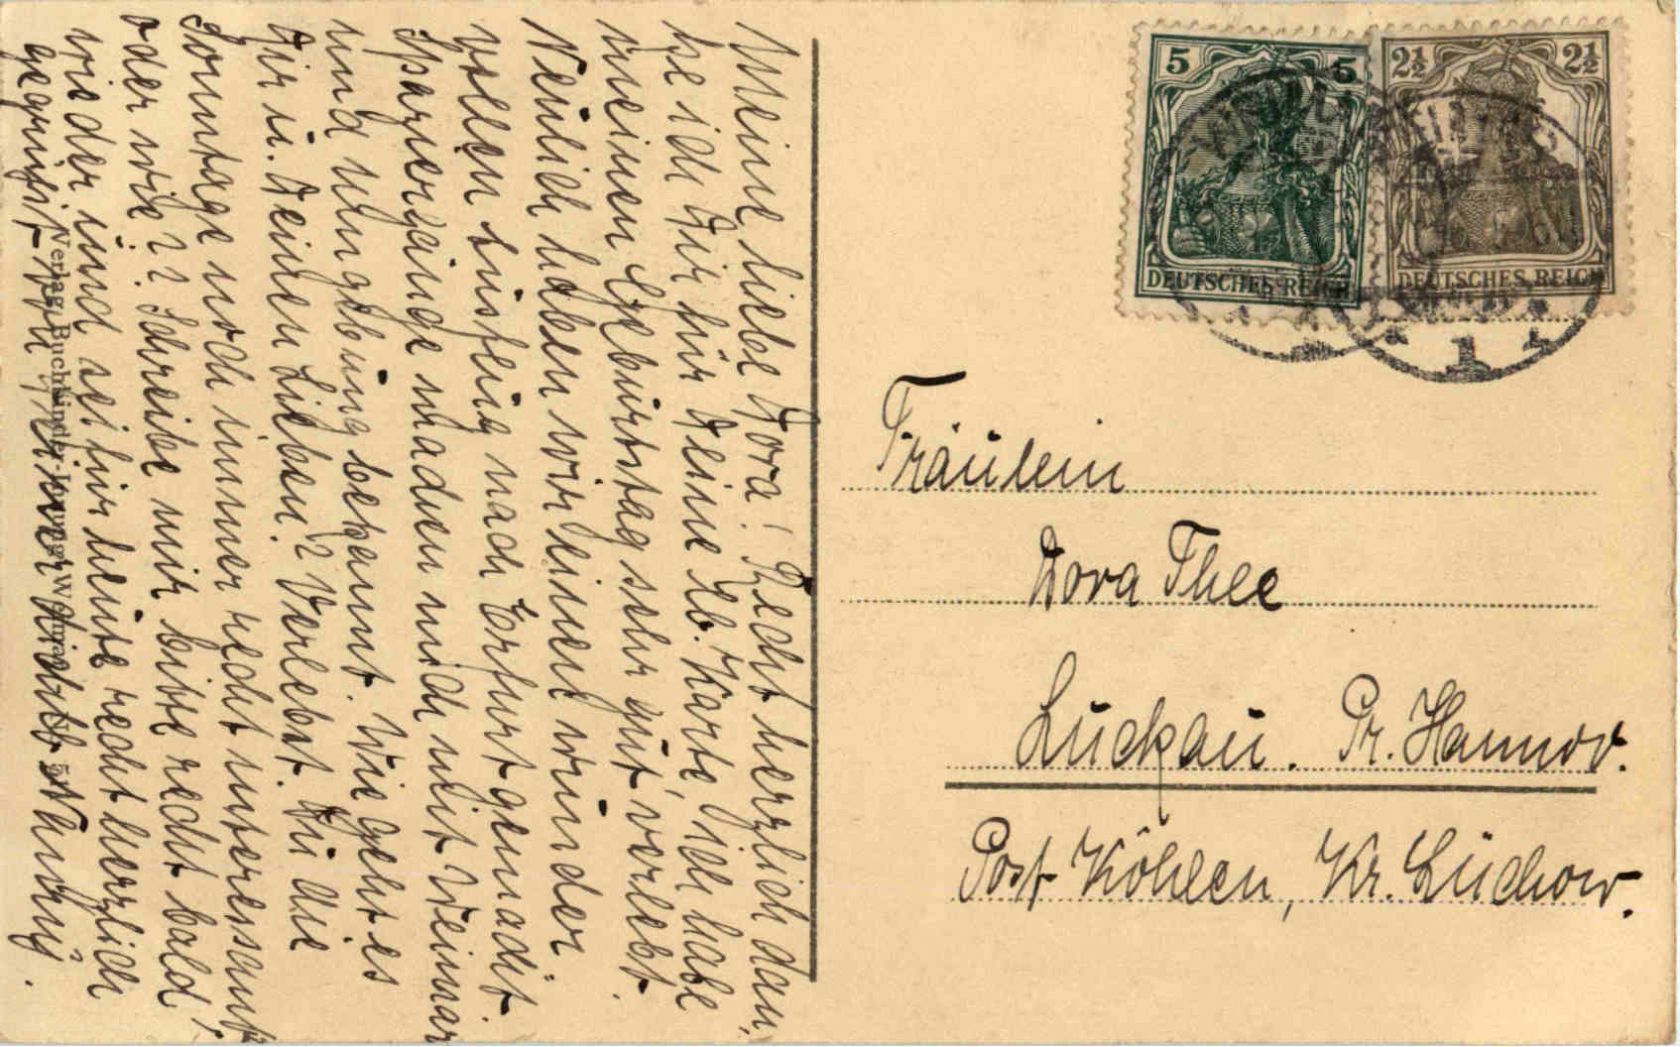 Meine liebe Dora! Recht herzlich dan,
ke ich Dir für Deine lb. Karte, ich habe
meinen Geburtstag sehr gut verlebt.
Neulich haben wir einen wunder
vollen Ausflug nach Erfurt gemacht.
Spaziergänge machen mich mit Weimar
und Umgebung bekannt. Wie geht es
Dir u. Deinen Lieben? Verlebst Du die
Sonntage noch immer recht interessant
oder wie?? Schreibe mir bitte recht bald
wieder und sei für heute recht herzlich
gegrüßt von Deiner Nanny.
Verlag: Buchbinder-Innung Weimar
5 5
DEUTSCHES REICH
2½ 2½
DEUTSCHES REICH
Fräulein
Dora Thee
Luckau. Pr. Hannov.
Post Köhlen, Kr. Lüchow.